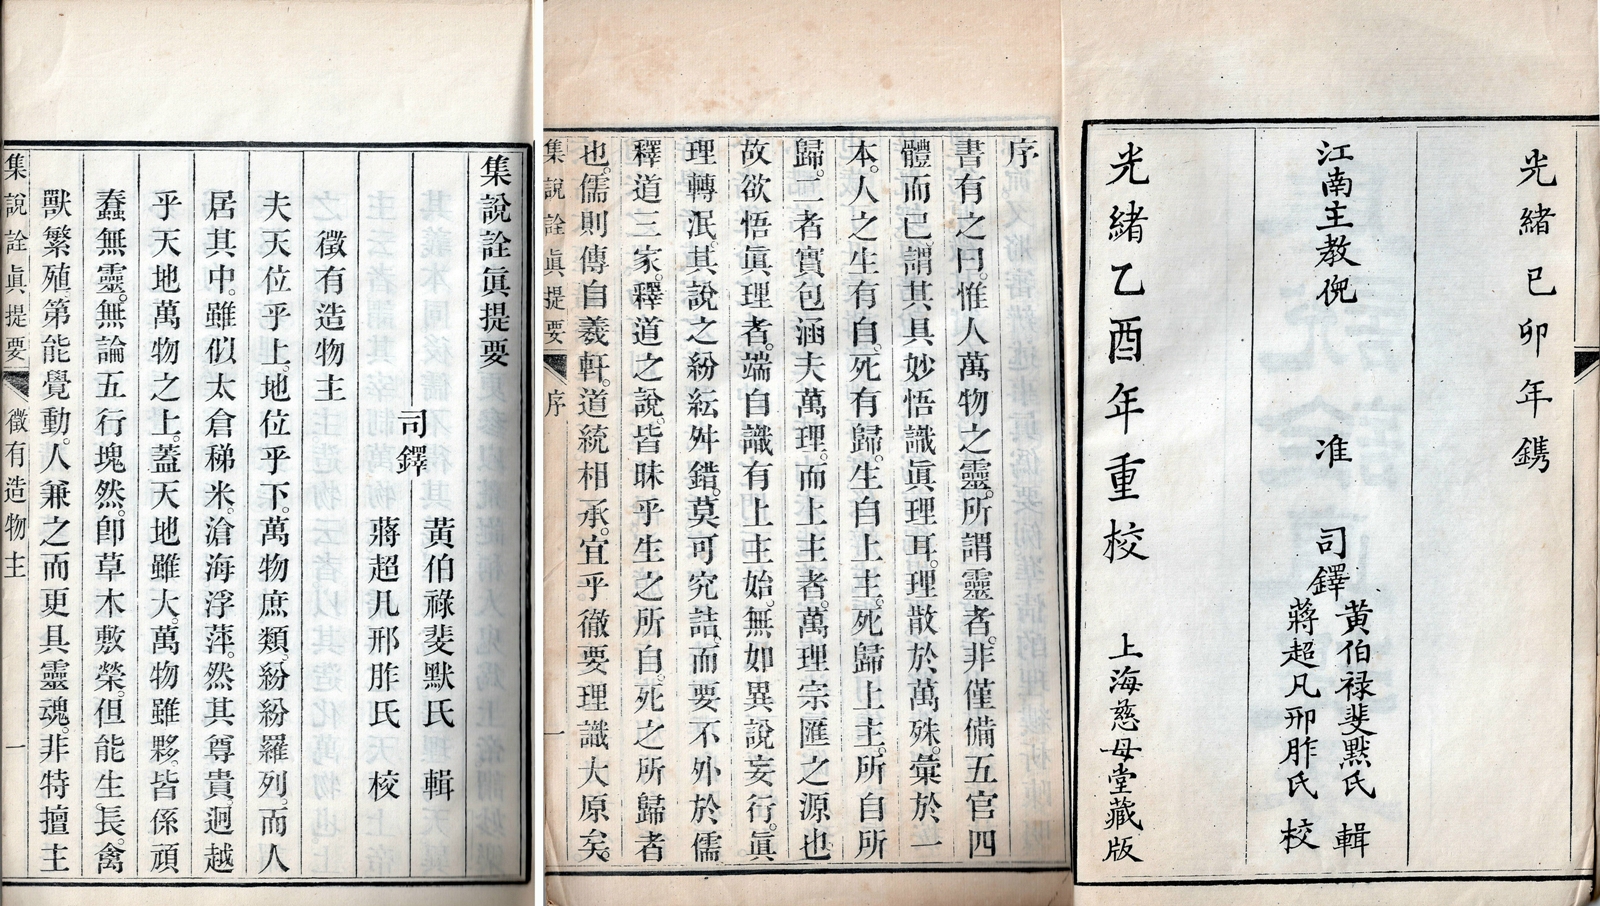 光緒己卯年鐫
江南主教倪
准
司鐸
黃伯祿斐默氏 輯
蔣超凡邢胙氏 校
光緒乙酉年重校 上海慈母堂藏版
序
書有之曰。惟人萬物之靈。所謂靈者。非僅備五官四
體而已。謂其具妙悟識眞理耳。理散於萬殊。彙於一
本。人之生有自。死有歸。生自上主。死歸上主。所自所
歸。二者實包涵夫萬理。而上主者。萬理宗匯之源也
故欲悟眞理者。端自識有上主始。無如異說妄行。眞
理轉泯。其說之紛紜舛錯。莫可究詰。而要不外於儒
釋道三家。釋道之說。皆昧乎生之所自。死之所歸者
也。儒則傳自羲軒。道統相承。宜乎徹要理識大原矣。
集說詮眞提要 序 一
集說詮眞提要
司鐸
黃伯祿斐默氏 輯
蔣超凡邢胙氏 校
徵有造物主
夫天位乎上。地位乎下。萬物庶類。紛紛羅列。而人
居其中。雖似太倉稊米。滄海浮萍。然其尊貴。迥越
乎天地萬物之上。蓋天地雖大。萬物雖夥。皆係頑
蠢無靈。無論五行塊然。卽草木敷榮。但能生長。禽
獸繁殖。第能覺動。人兼之而更具靈魂。非特擅主
集說詮眞提要 徵有造物主 一